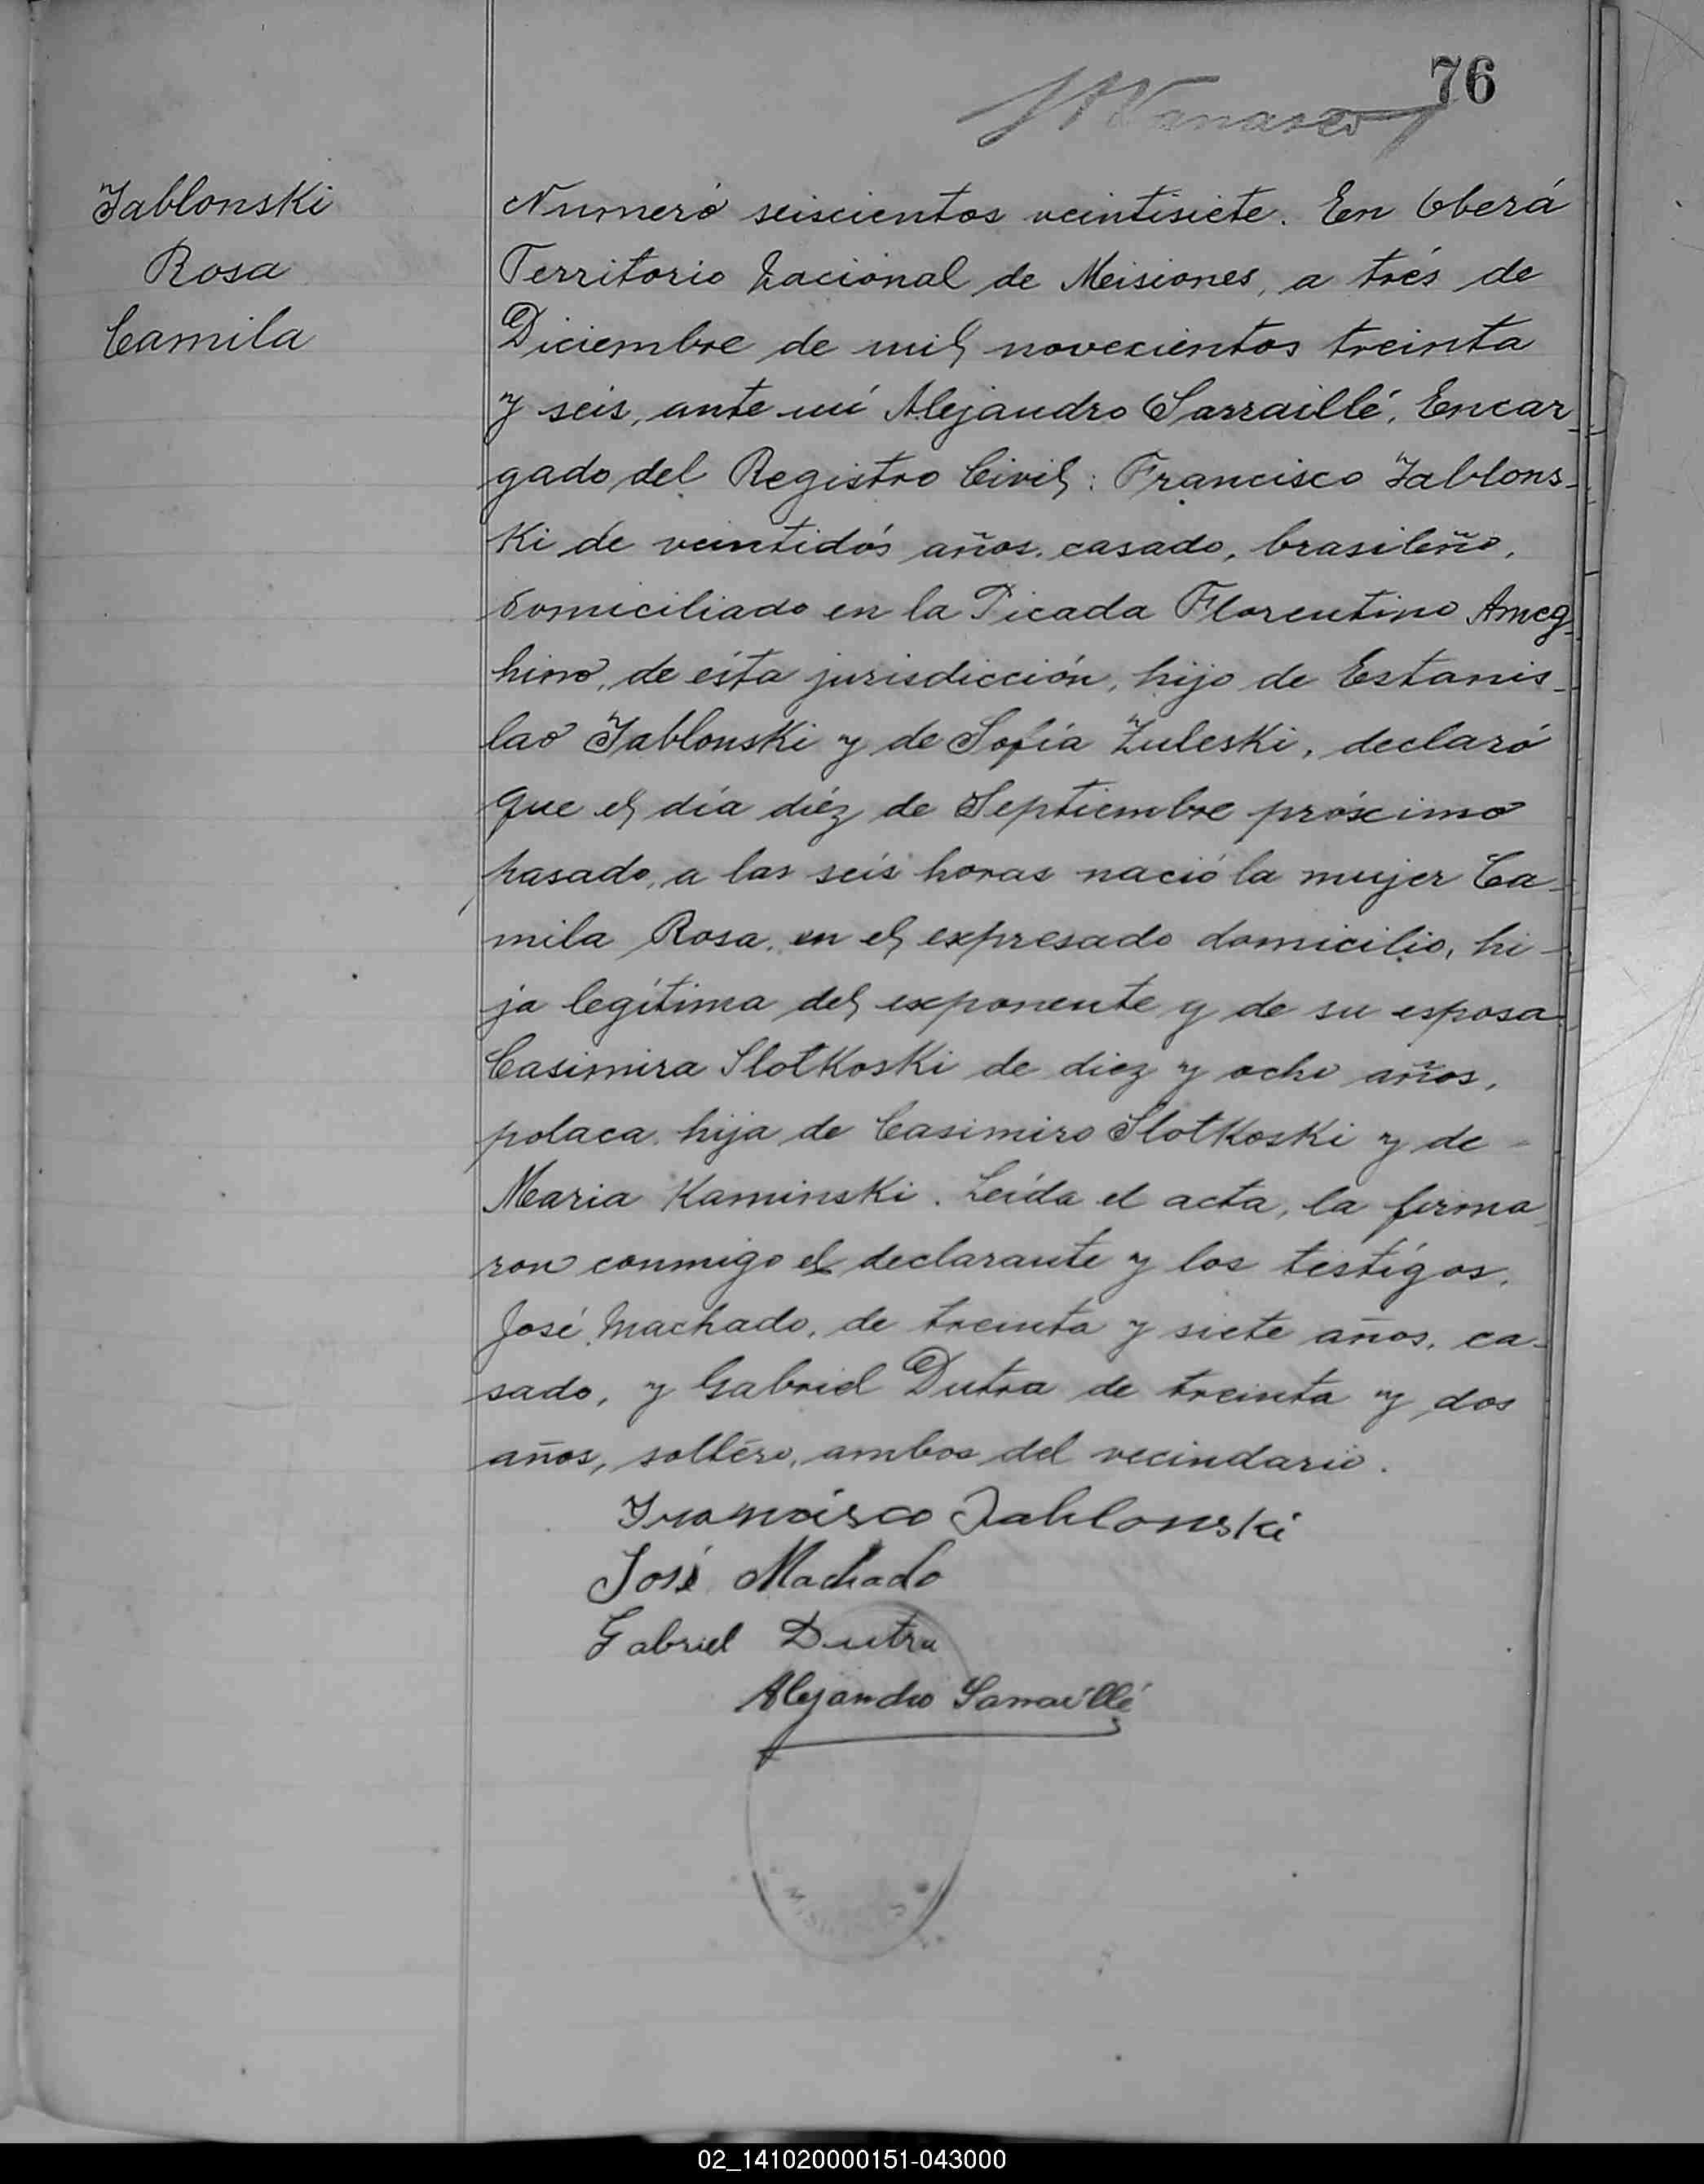 76
Jablonski
Rosa
Camila
Numeró seiscientos veintisiete. En Oberá
Territorio Nacional de Meisiones, a trés de
Diciembre de mil novecientos treinta
y seis, ante mí Alejandro Sarraillé, Encar-
gado del Registro Civil: Francisco Jablons-
ki de veintidós años, casado, brasileño,
domiciliado en la Picada Florentino Ameg-
hino, de ésta jurisdicción, hijo de Estanis-
lao Jablonski y de Sofía Zuleski, declaró
que el día diéz de Septiembre próximo
pasado, a las seis horas nació la mujer Ca-
mila Rosa, en el expresado domicilio, hi-
ja legítima del exponente y de su esposa
Casimira Slotkoski de diez y ocho años,
polaca, hija de Casimiro Slotkoski y de
Maria Kaminski. Leída el acta, la firma-
ron conmigo el declarante y los testígos,
José Machado, de treinta y siete años, ca-
sado, y Gabriel Dutra de treinta y dos
años, soltéro, ambos del vecindario.
Francisco Jablonski
José Machado
Gabriel Dutra
Alejandro Sarraillé
02_141020000151-043000